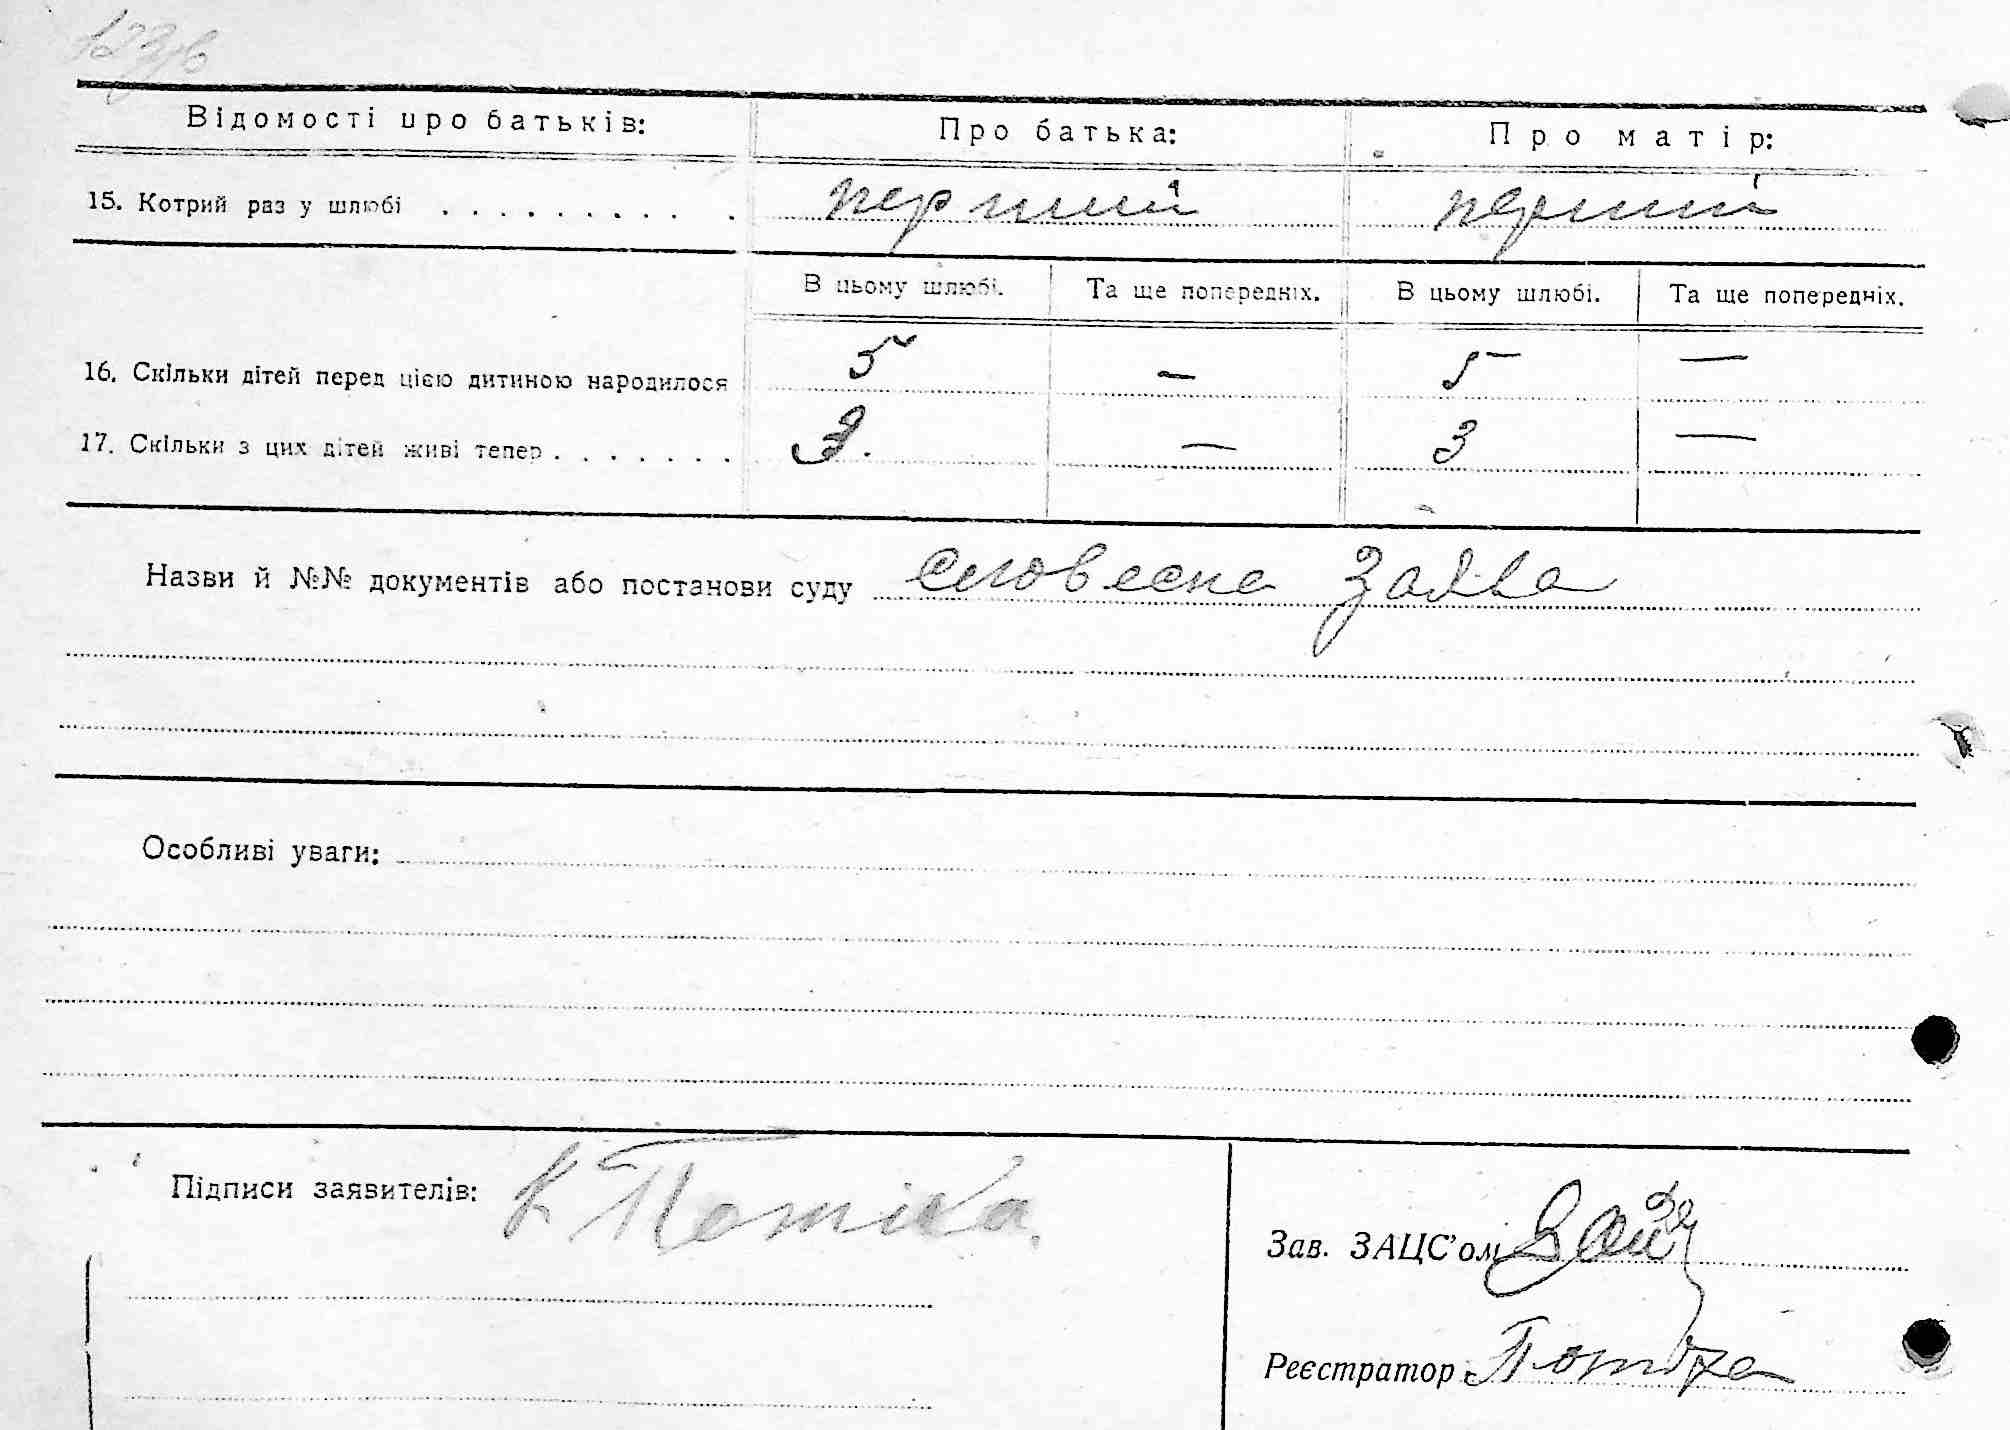 123б
Відомості про батьків: Про батька: Про матір:
15. Котрий раз у шлюбі . . . . . . . . . . перший перший
В цьому шлюбі. Та ще попередніх. В цьому шлюбі. Та ще попередніх.
16. Скільки дітей перед цією дитиною народилося 5 — 5 —
17. Скільки з цих дітей живі тепер . . . . . . . 3. — 3 —
Назви й №№ документів або постанови суду словесна заява
Особливі уваги:
Підписи заявителів:
Зав. ЗАЦС'ом
Реєстратор